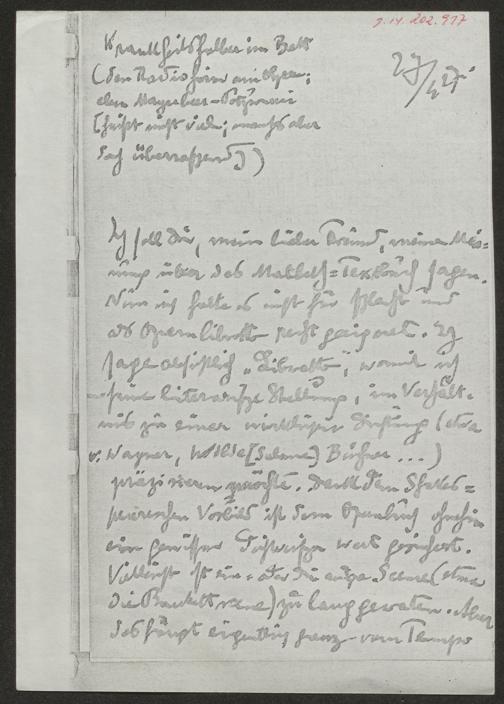 Krankheitshalber im Bett
(den Radiohörer am Ohr;
ein Meyerbeer-Potpourri
schrift nicht viel; macht's aber
doch überraschend))
27/4 27.
Ich soll Dir, mein lieber Freund, meine Mei=
nung über das Macbeth=Textbuch sagen.
Nun ich halte es nicht für schlecht und
als Opernlibretto recht geeignet. Ich
sage absichtlich „Libretto", womit ich
seine literarische Stellung, im Verhält-
nis zu einer wirklichen Dichtung (etwa
v. Wagner, Wilde [Salome] Büchner ...)
präzisieren möchte. Dank dem Shakes=
peareschen Vorbild ist dem Opernbuch ohnehin
ein gewisser dichterischer Wert gesichert.
Vielleicht ist eine oder die andre Scene (etwa
die Bankettscene) zu lang geraten. Aber
das hängt eigentlich ganz vom Tempo